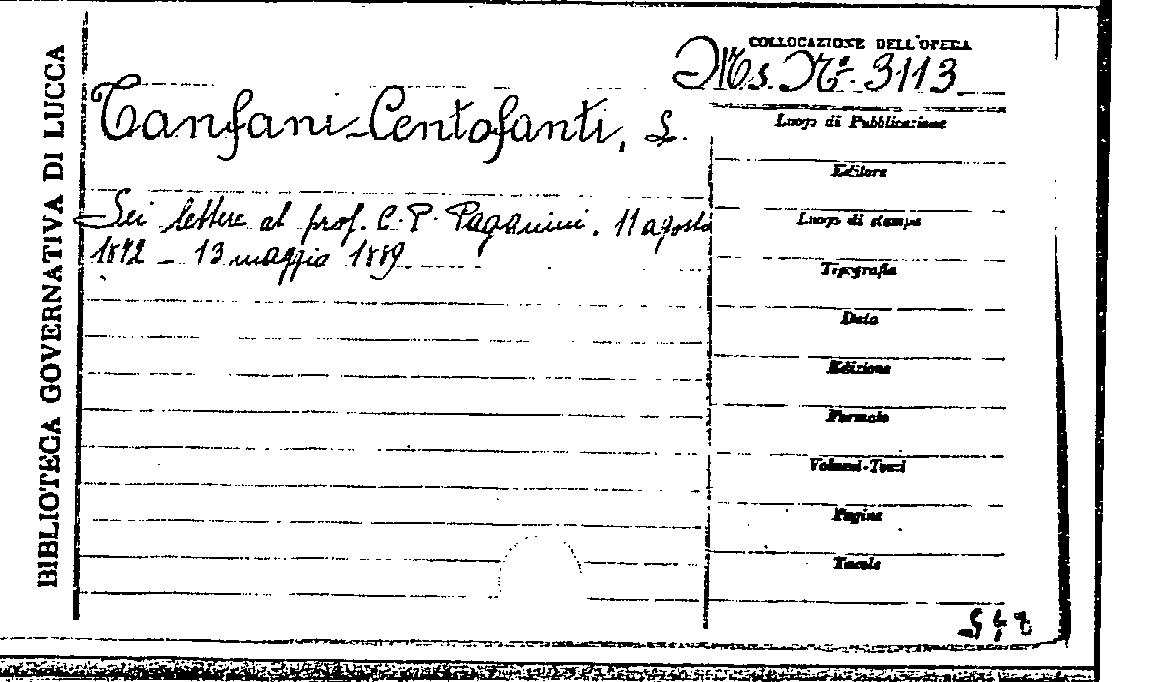 BIBLIOTECA GOVERNATIVA DI LUCCA
COLLOCAZIONE DELL'OPERA
Ms. Nº. 3113
Tanfani-Centofanti, L.
Sei lettere al prof. C. P. Paganini. 11 agosto
1872 - 13 maggio 1889
Luogo di Pubblicazione
Editore
Luogo di stampa
Tipografia
Data
Edizione
Formato
Volumi-Tomi
Pagine
Tavole